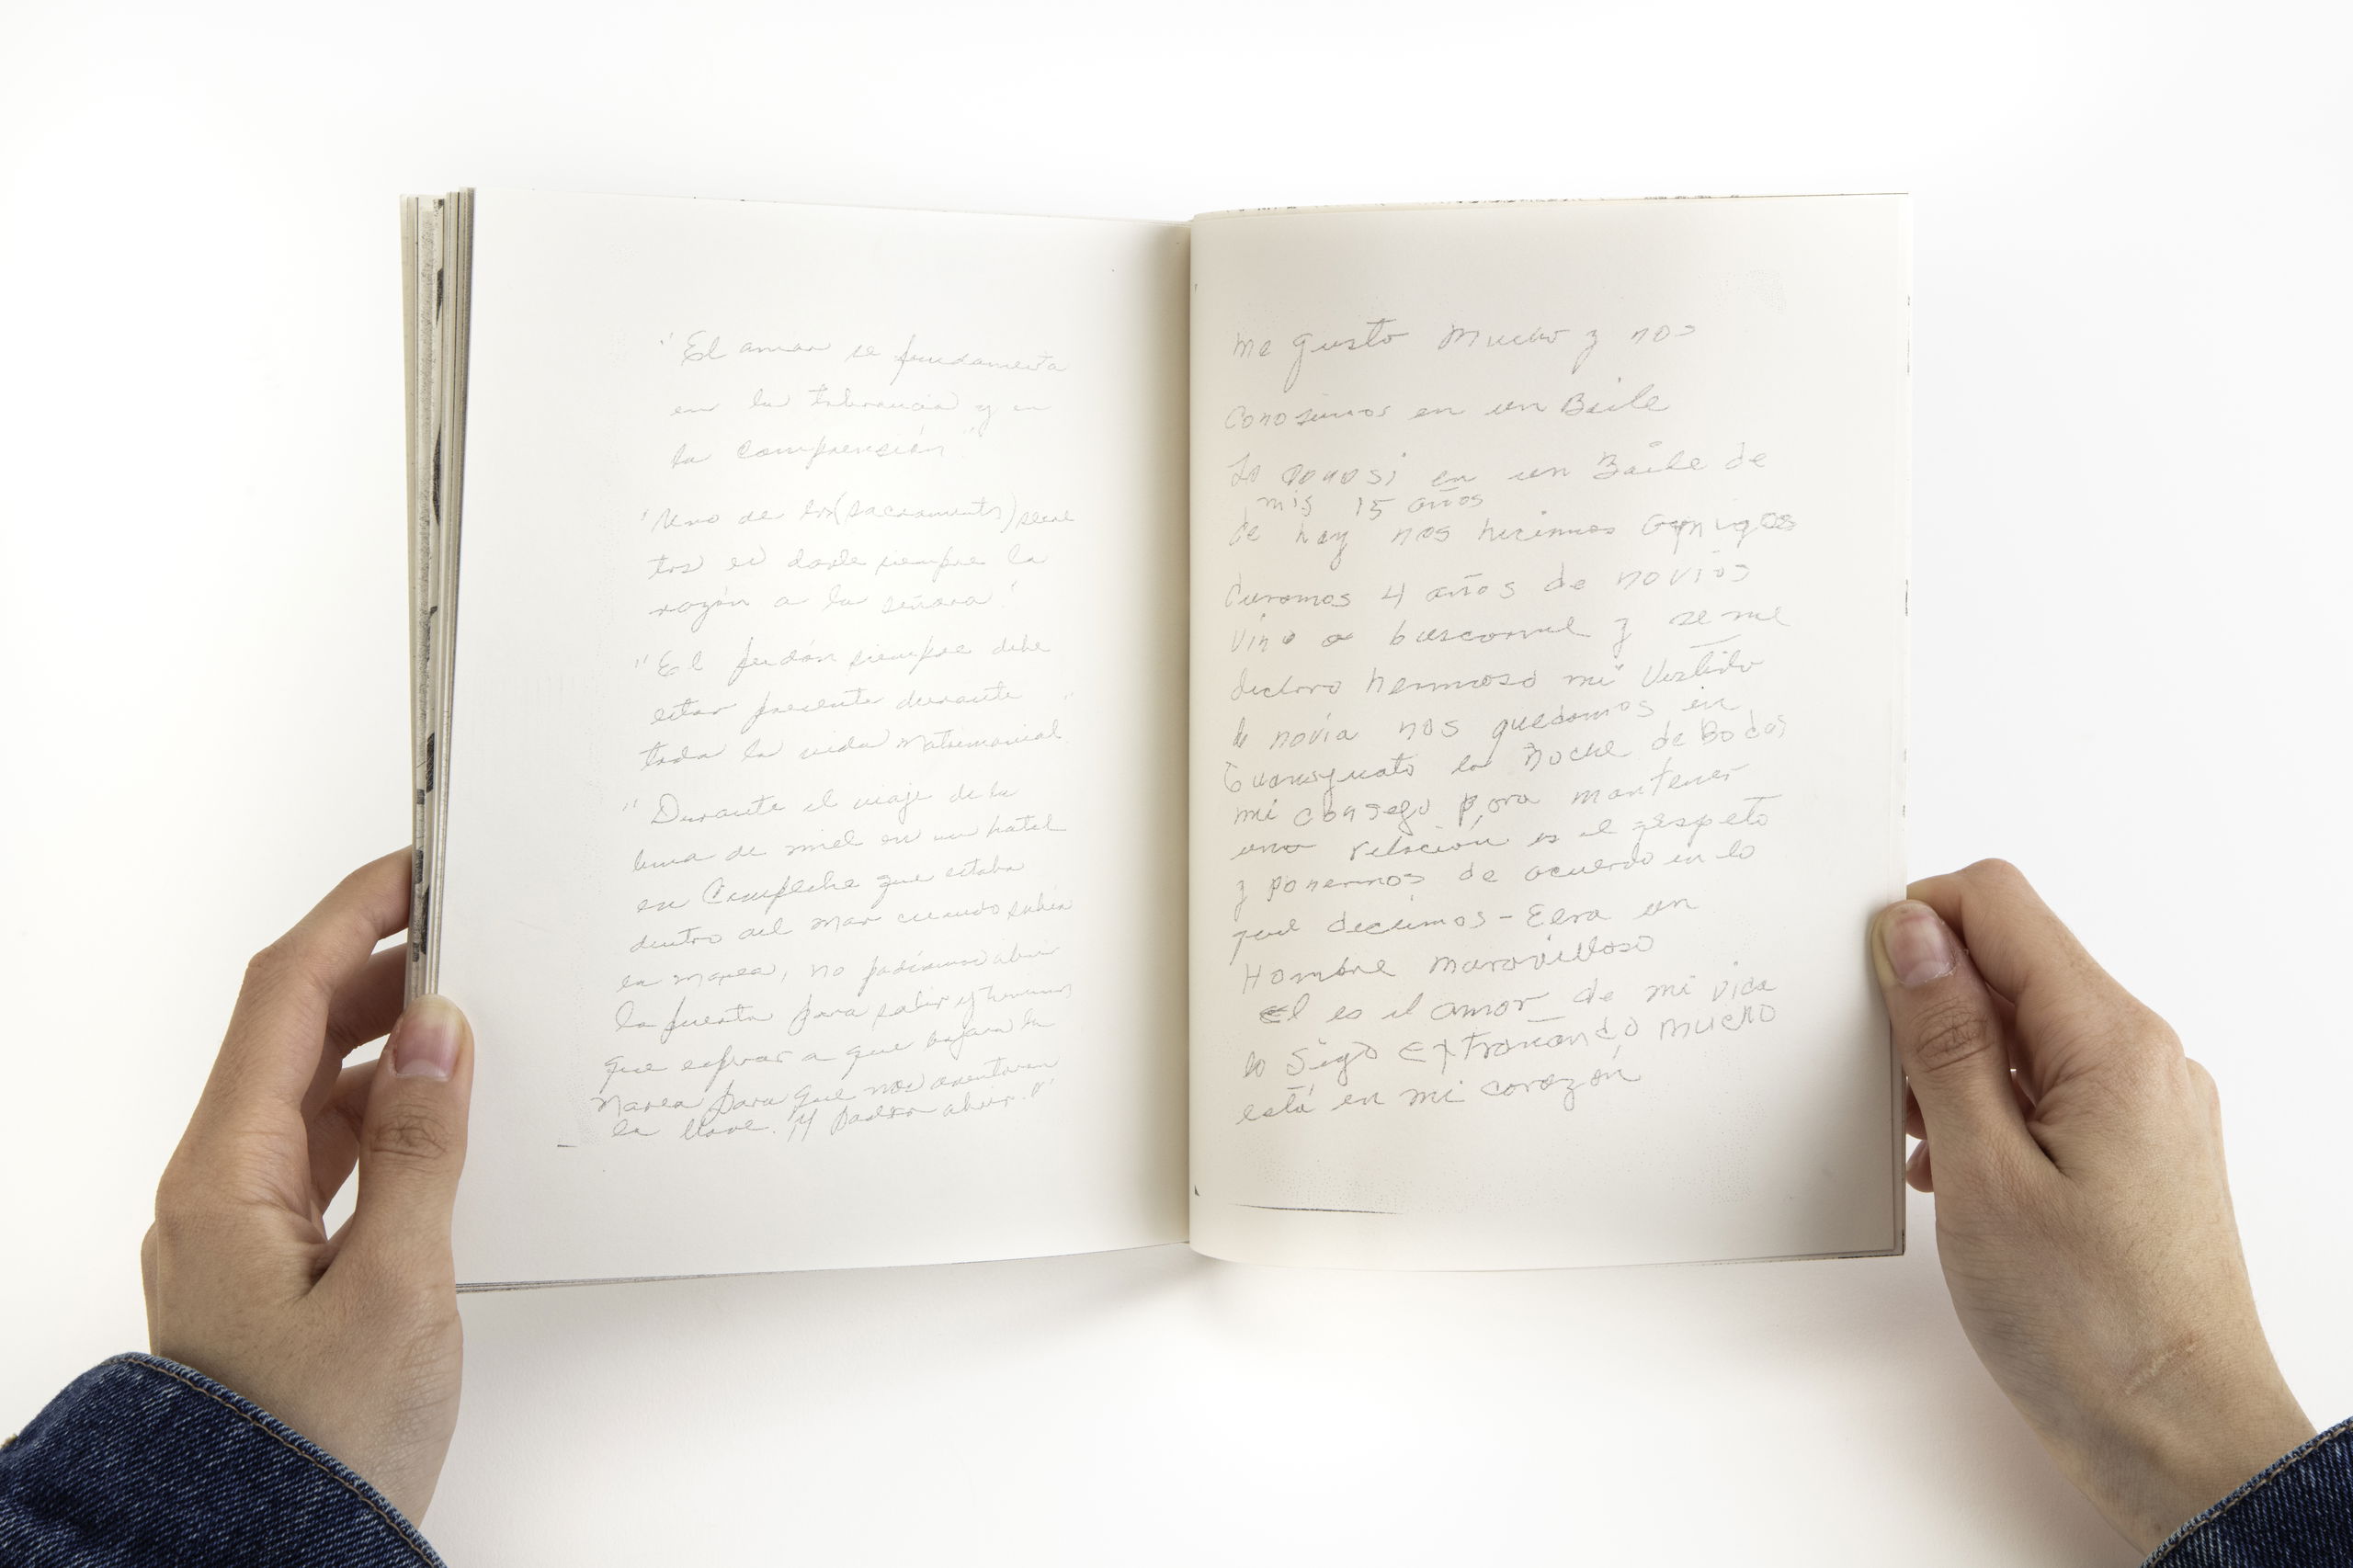 "El amor se fundamenta
en la tolerancia y en
la comprensión"
"Uno de los (sacramentos) secre
tos es darle siempre la
razón a la señora"
"El perdón siempre debe
estar presente durante
toda la vida matrimonial"
"Durante el viaje de la
luna de miel en un hotel
en Campeche que estaba
dentro del mar cuando subía
la marea, no podíamos abrir
la puerta para salir y tenemos
que esperar a que bajara la
marea para que nos aventaran
la llave. y poder abrir."
me gusto mucho y nos
Conosimos en un Baile
Lo conosi en un Baile de
mis 15 años
de hay nos hicimos amigos
duramos 4 años de novios
vino a buscarme y se me
declaro hermoso mi vestido
de novia nos quedamos en
Guanajuato la Noche de Bodas
mi consejo para mantener
una relación es el respeto
y ponernos de acuerdo en lo
que decimos - El era un
Hombre maravilloso
El es el amor de mi vida
lo sigo extrañando mucho
está en mi corazón